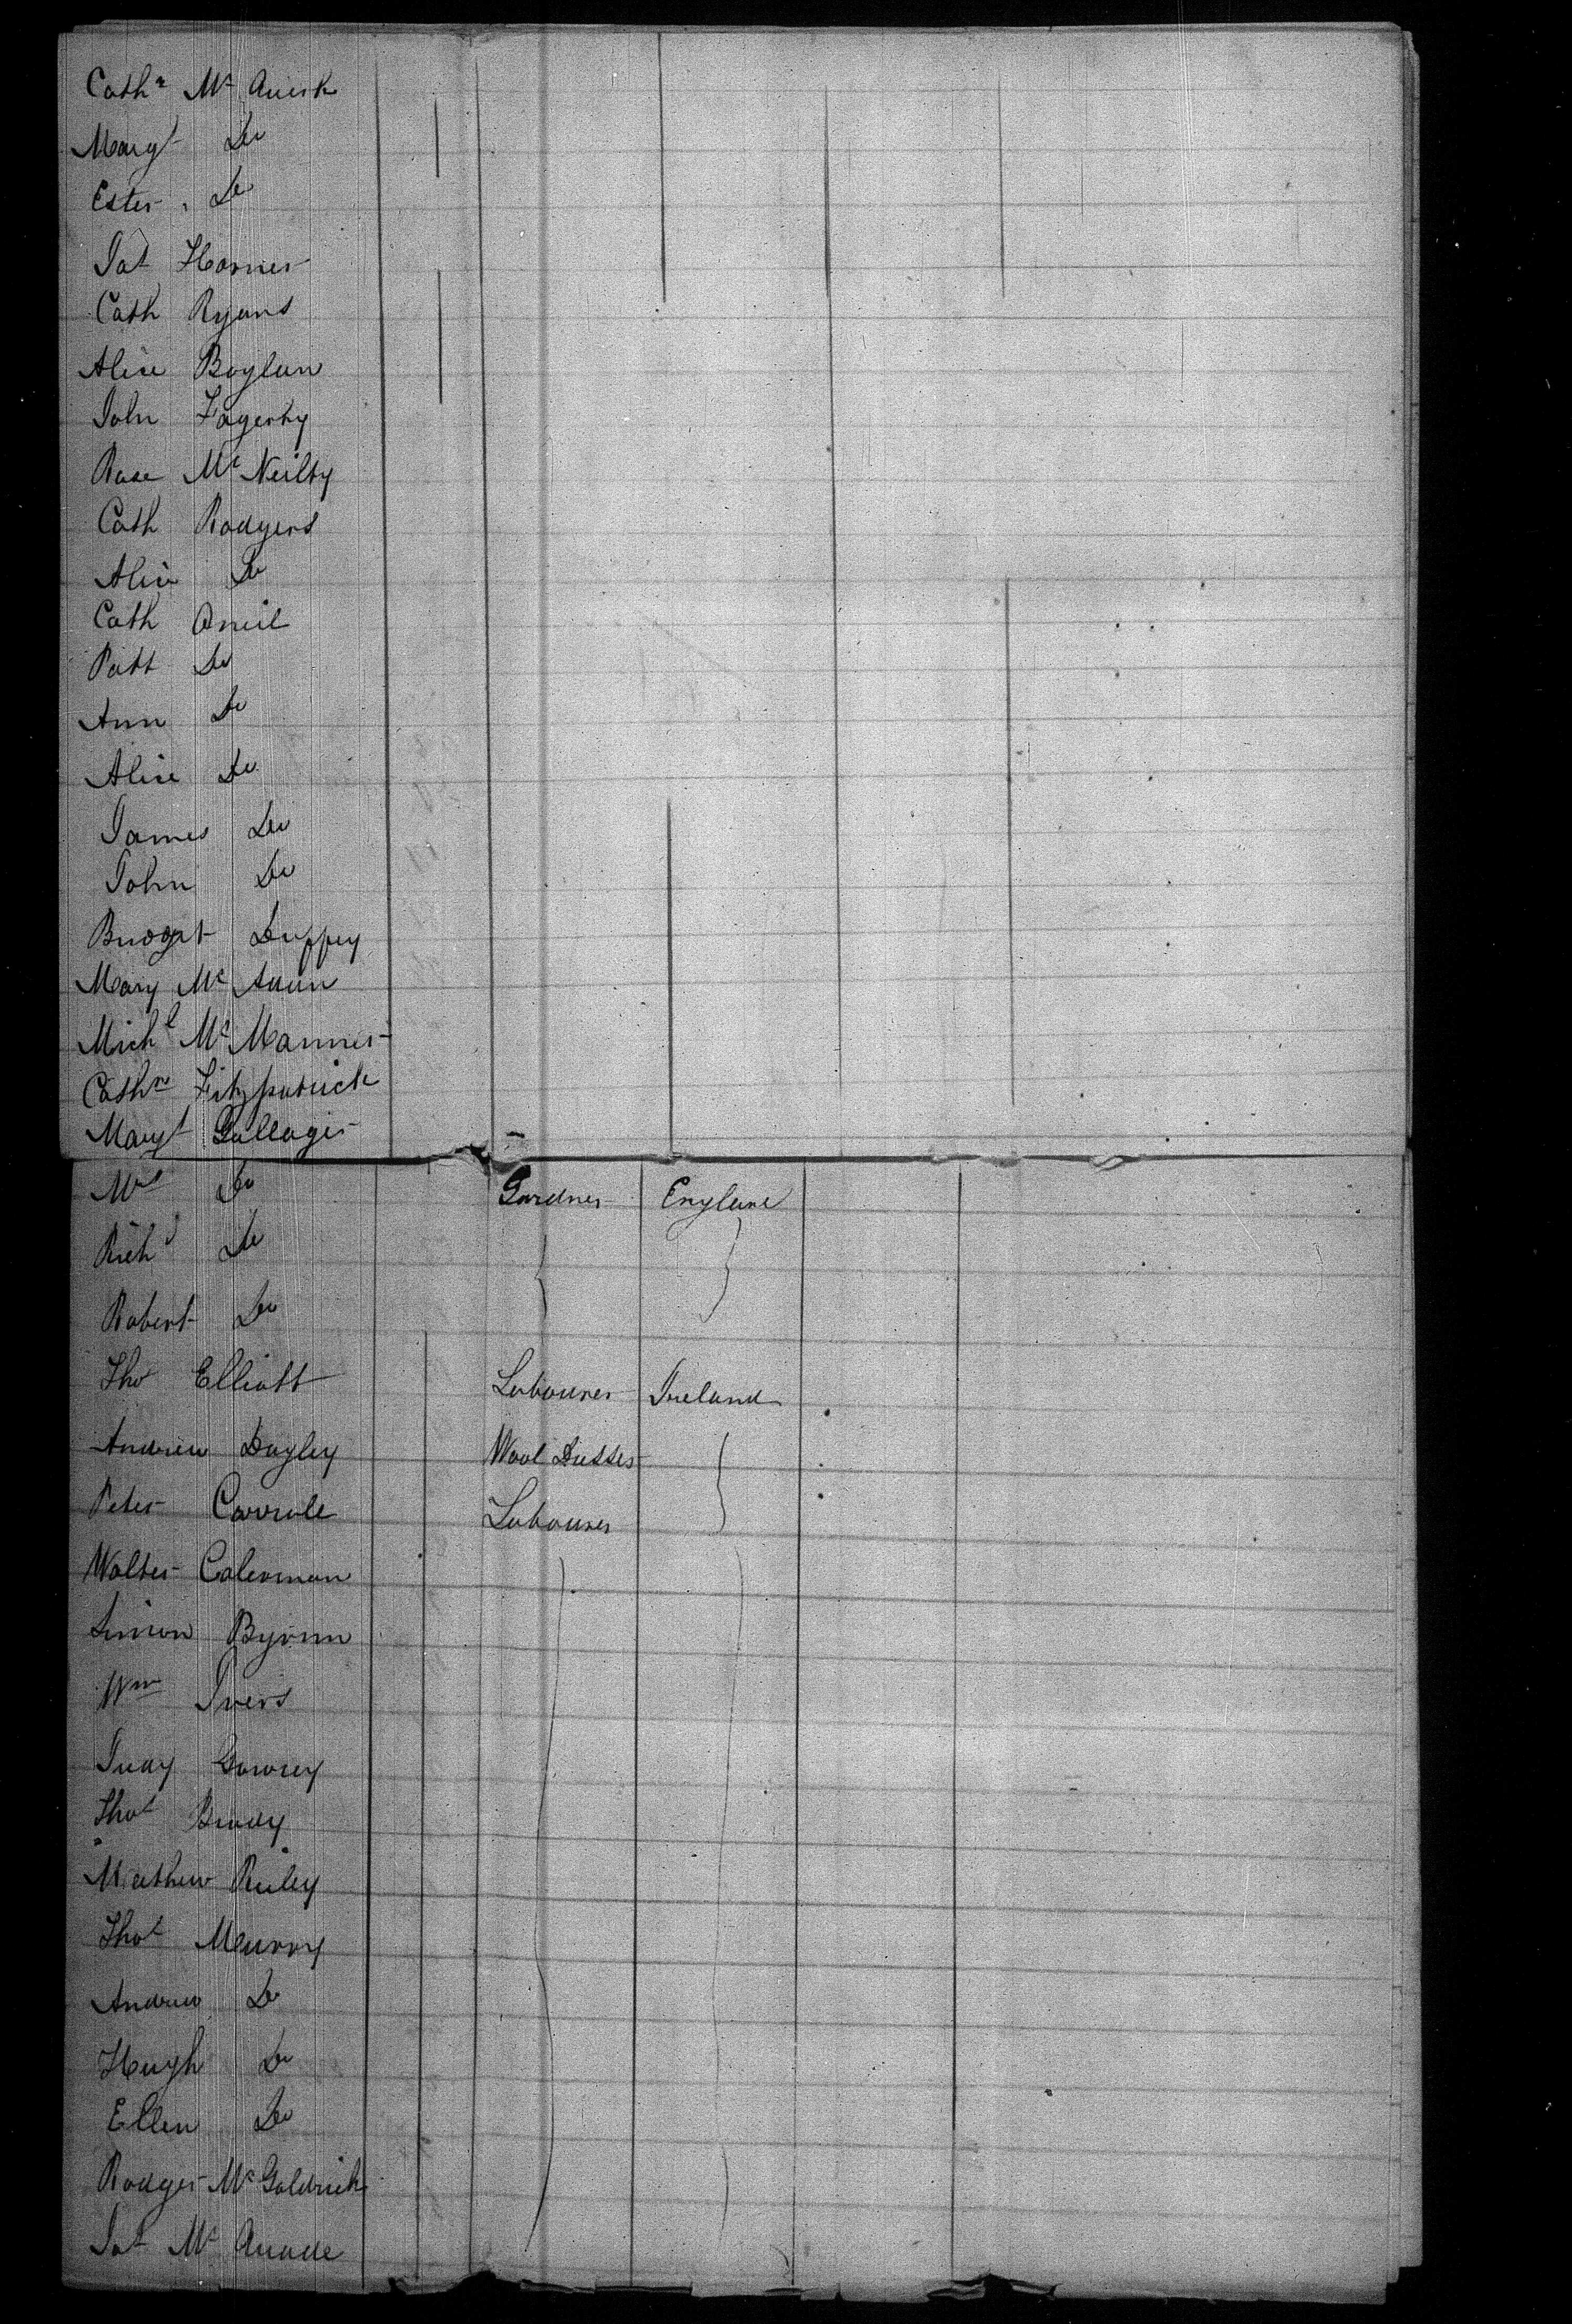 Cathn Mc Quirk
Margt Do
Ester Do
Jas Horner
Cath Ryans
Alice Boylan
John Fagerty
Rose Mc Neilty
Cath Rodgers
Alice Do
Cath Oneil
Patt Do
Ann Do
Alice Do
James Do
John Do
Bridget Duffey
Mary Mc
Michl Mc Manner
Cathn Fitzpatrick
Margt Gallager
Do Gardner England
Richd Do
Robert Do
Thos Elliott Labourer Ireland
Andrew Dayley Wool
Peter Carrole Labourer
Walter Coleman
Simon Byrnn
Wm Ivers
Judy
Thos Brady
Mathew Reiley
Thos Murry
Andrew Do
Hugh Do
Ellen Do
Rodger Mc Goldrick
Jas Mc Quade